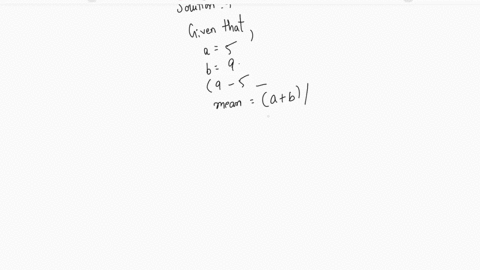 Solution :-
Given that,
a = 5
b = 9.
(9 - 5 -
mean = (a+b)/